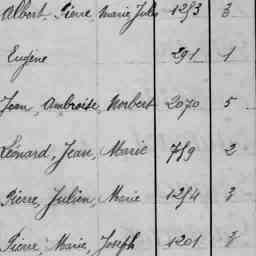 Albert, Pierre, Marie Jules 1283 3
Eugène 291 1
Jean, Ambroise, Norbert 2070 5
Léonard, Jean, Marie 759 2
Pierre, Julien, Marie 1284 3
Pierre, Marie, Joseph 1201 3